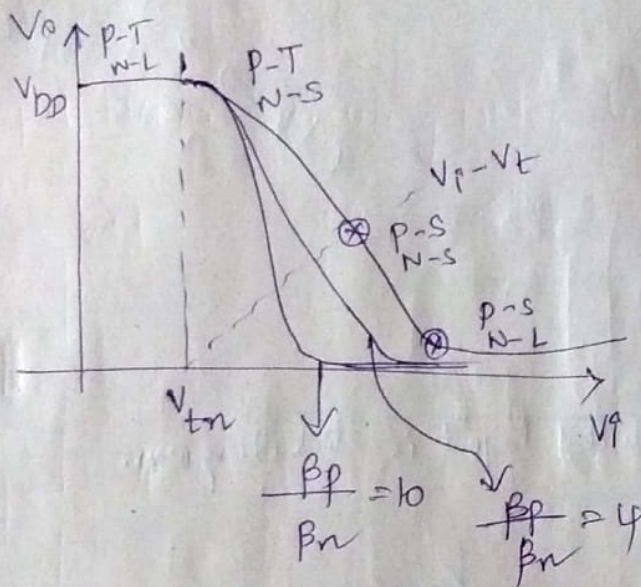 Vo
P-T
N-L
VDD
P-T
N-S
Vi-Vt
P-S
N-S
P-S
N-L
Vtn
Vi
βp/βn = 10
βp/βn = 4